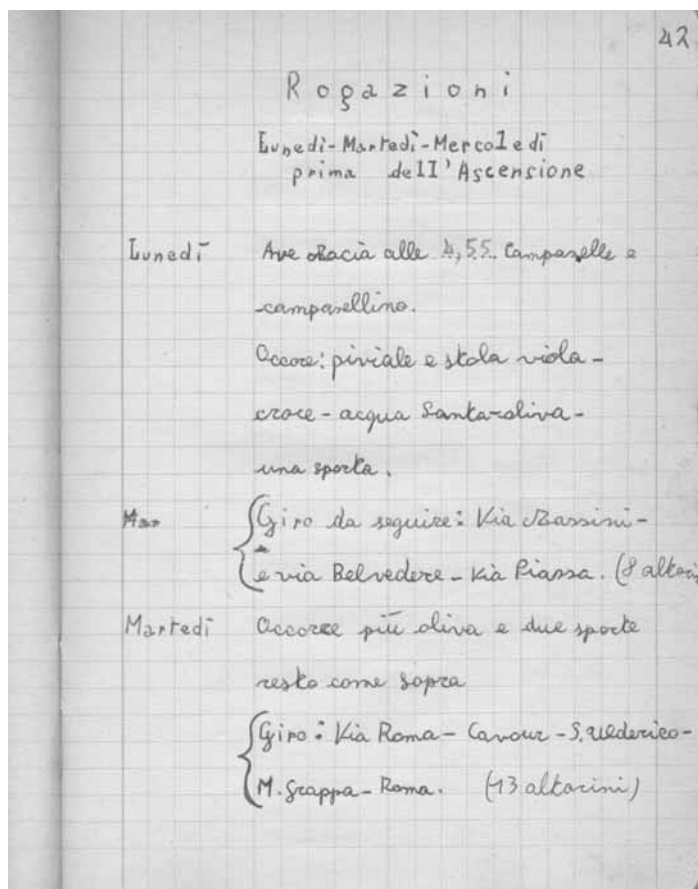 42
Rogazioni
Lunedì-Martedì-Mercoledì
prima dell'Ascensione
Lunedì Ave Macia alle 4,55. Campanelle e
campanellino.
Occore: piviale e stola viola -
croce - acqua Santa - oliva -
una sporta.
Mar Giro da seguire: Via Massini -
e via Belvedere - Via Piassa. (8 altarini
Martedì Occorre più oliva e due sporte
resto come sopra
Giro: Via Roma - Cavour - S. Ulderico -
M. Grappa - Roma. (13 altarini)